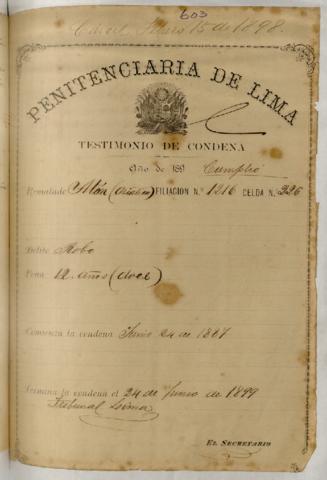 603
Cárcel, Enero 15 de 1898.
PENITENCIARIA DE LIMA
TESTIMONIO DE CONDENA
Año de 189 Cumplió
Rematado Alón (Asiático) FILIACION N.º 1216 CELDA N.º 226
Delito Robo
Pena 12 años (doce)
Comienza la condena Junio 24 de 1887
Termina la condena el 24 de Junio de 1899
Tribunal Lima
EL SECRETARIO